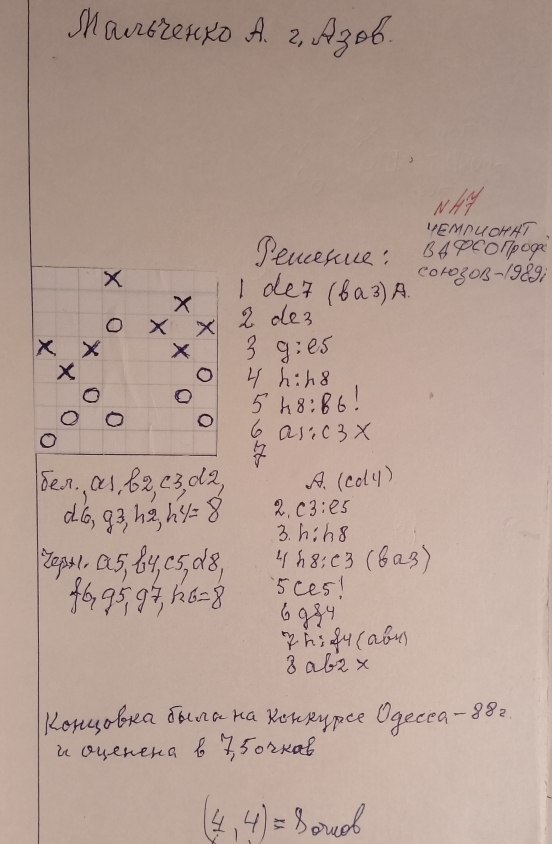 Мальченко А. г. Азов.
N47
ЧЕМПИОНАТ
ВДФСО Проф
союзов-1989г
Решение:
1 de7 (ba3) A.
2 de3
3 g:e5
4 h:h8
5 h8:b6!
6 a1:c3 X
7
бел., a1, b2, c3, d2,
d6, g3, h2, h4 = 8
Черн. a5, b4, c5, d8,
f6, g5, g7, h6 = 8
A. (cd4)
2. c3:e5
3. h:h8
4 h8:c3 (ba3)
5 ce5!
6 gf4
7 h:f4 (ab4)
8 ab2 x
Концовка была на конкурсе Одесса-88г.
и оценена в 7,5 очков
(4, 4) = 8 очков